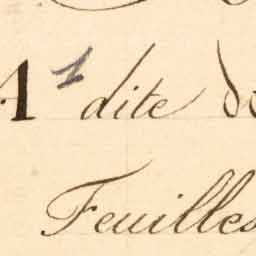 A 1 dite
Feuilles